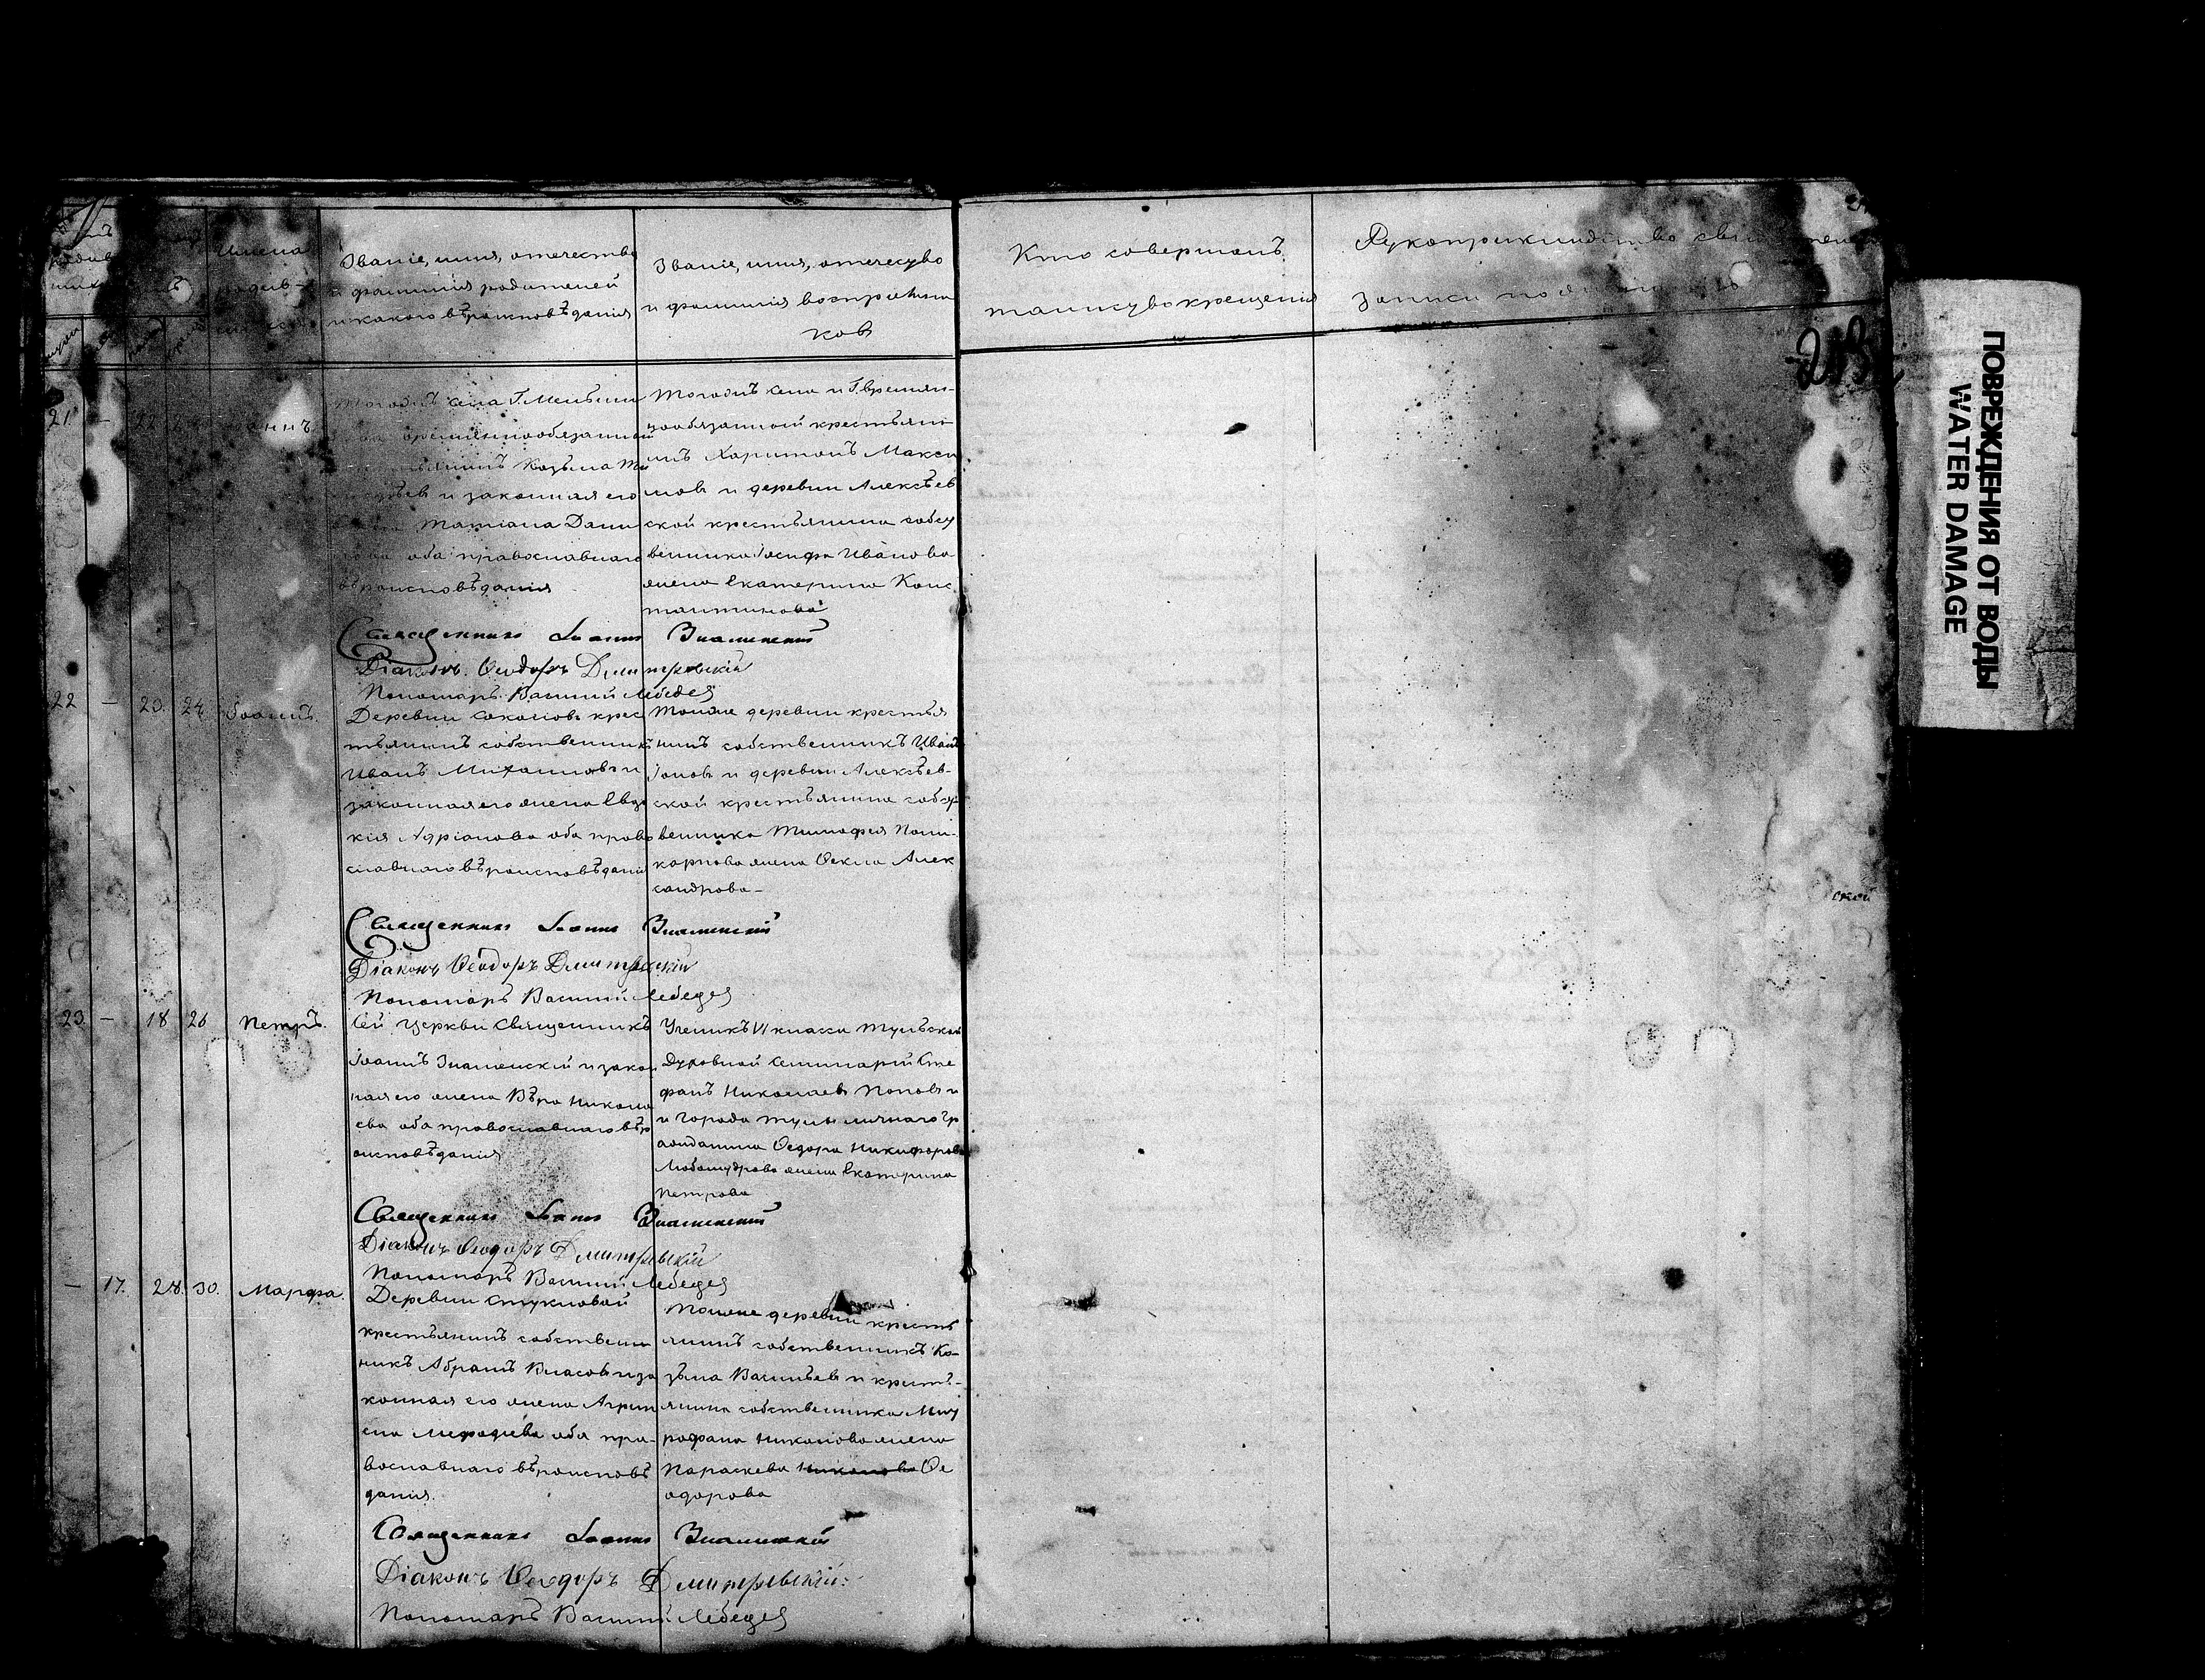 Имена
Званіе, имя, отечество
и фамилія родителей
и какого вѣроисповѣданія
Званіе, имя, отечество
и фамилія воспріемни
ковъ
Кто совершалъ
таинство крещенія
Рукоприкладство
записи по
21. – 22
Тогожъ села Г.
временнообязанный
Козьма
и законная его
Татіана Дани
оба православнаго
вѣроисповѣданія
Тогожъ села и Г. времян-
нообязанной крестьяни
нъ Харитонъ Макси
мовъ и деревни Алексѣев
ской крестьянина собст
венника Іосифа Иванова
жена Екатерина Конс
тантинова
Священникъ Іоаннъ Знаменскій
Діаконъ Ѳеодоръ Дмитревскій
Пономарь Василий Лебедев
22 – 23. 24. Іоаннъ.
Деревни Соколовъ крес
тьянинъ собственникъ
Иванъ Михаиловъ и
законная его жена Евдо
кія Адріанова оба право
славнаго вѣроисповѣданія
Тойже деревни крестья
нинъ собственникъ Иванъ
Іоновъ и деревни Алексѣев-
ской крестьянина собст
венника Тимофея Поли-
карпова жена Ѳекла Алек
сандрова –
Священникъ Іоаннъ Знаменскій
Діаконъ Ѳеодоръ Дмитревскій
Пономарь Василий Лебедев
23. – 18 26 Петръ.
Сей церкви Священникъ
Іоаннъ Знаменскій и закон
ная его жена Вѣра Никола
ева оба православнаго вѣр
оисповѣданія
Ученикъ VI класса Тульской
Духовной Семинаріи Сте
фанъ Николаевъ Поповъ и
и города Тулы личнаго гр
ажданина Ѳедора Никифорова
Любомудрова жена Екатерина
Петрова
Священникъ Іоаннъ Знаменскій
Діаконъ Ѳеодоръ Дмитревскій
Пономарь Василий Лебедев
– 17. 28. 30. Марфа.
Деревни Стукловой
крестьянинъ собствен
никъ Абрамъ Власовъ и за
конная его жена Агрип
ена Мефодіева оба пра-
вославнаго вѣроисповѣ
данія.
Тойже деревни кресть
янинъ собственникъ Ко-
зьма Васильевъ и кресть-
янина собственника Мит
рофана Никонова жена
Параскева Никонова Ѳе
одорова
Священникъ Іоаннъ Знаменскій
Діаконъ Ѳеодоръ Дмитревскій.
Пономарь Василий Лебедев
ской
ПОВРЕЖДЕНИЯ ОТ ВОДЫ
WATER DAMAGE